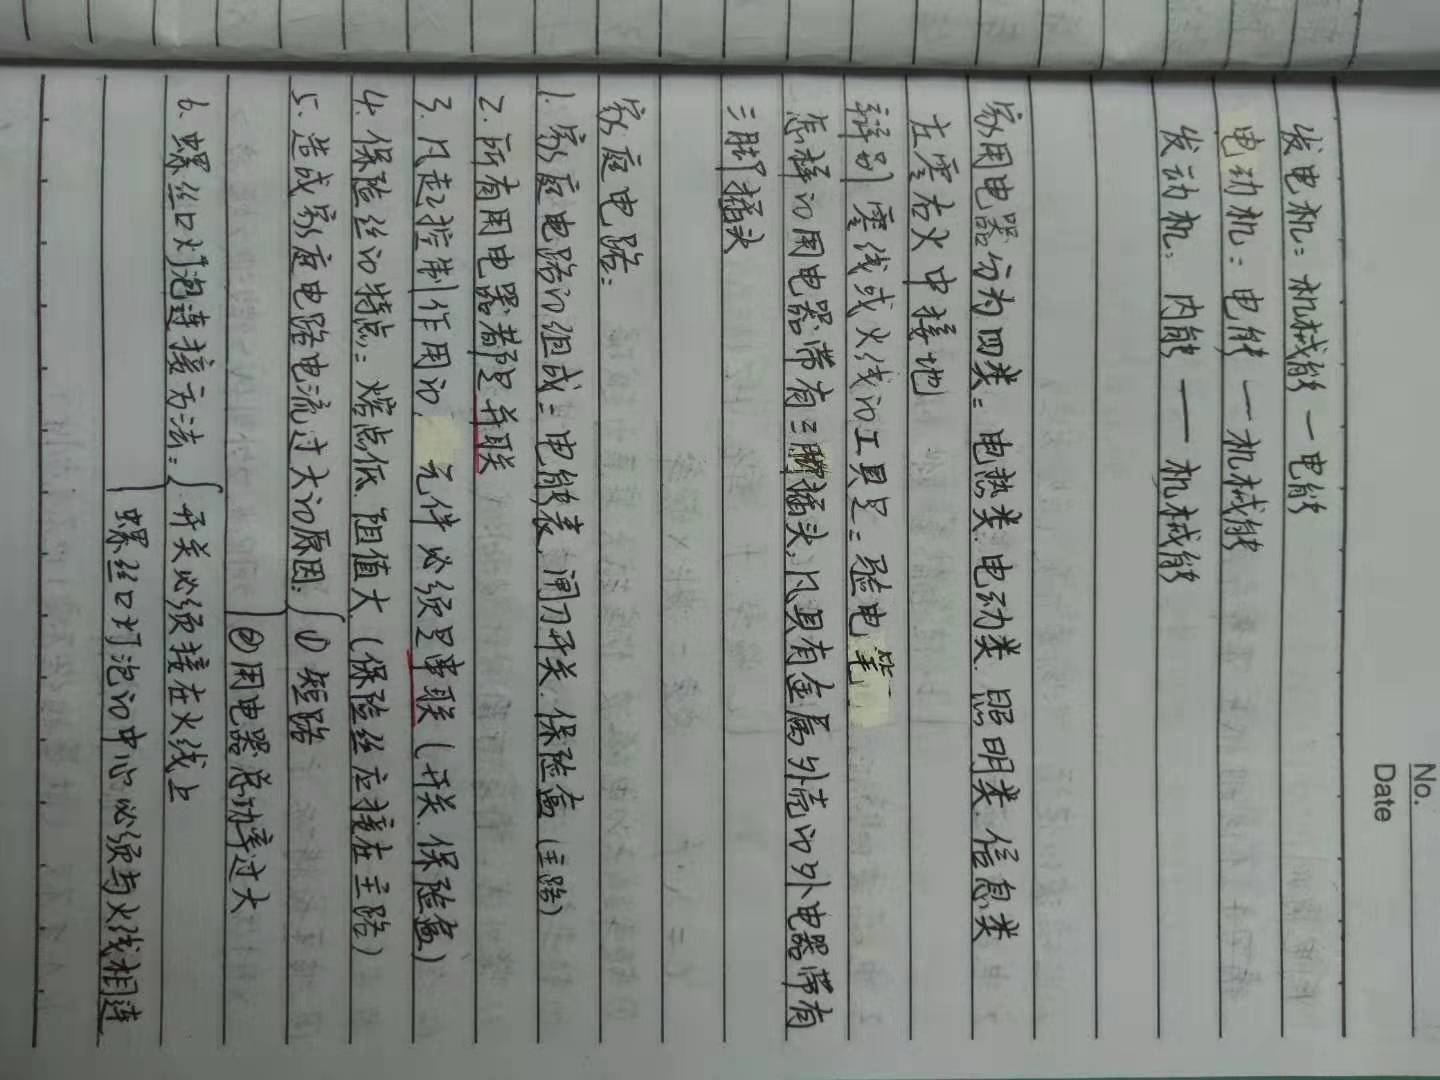 No.
Date
发电机：机械能—电能
电动机：电能—机械能
发动机：内能——机械能
家用电器分为四类：电热类.电动类.照明类.信息类
左零右火中接地
辩别零线或火线的工具是：验电笔
怎样的用电器带有三脚插头,凡具有金属外壳的外电器带有
三脚插头
家庭电路：
1. 家庭电路的组成：电能表.闸刀开关.保险盒(主路)
2. 所有用电器都是并联
3. 凡起控制作用的,元件必须是串联(开关.保险盒)
4. 保险丝的特点：熔点低.阻值大.(保险丝应接在主路)
5. 造成家庭电路电流过大的原因：①短路
②用电器总功率过大
6. 螺丝口灯泡连接方法：开关必须接在火线上
螺丝口灯泡的中心必须与火线相连